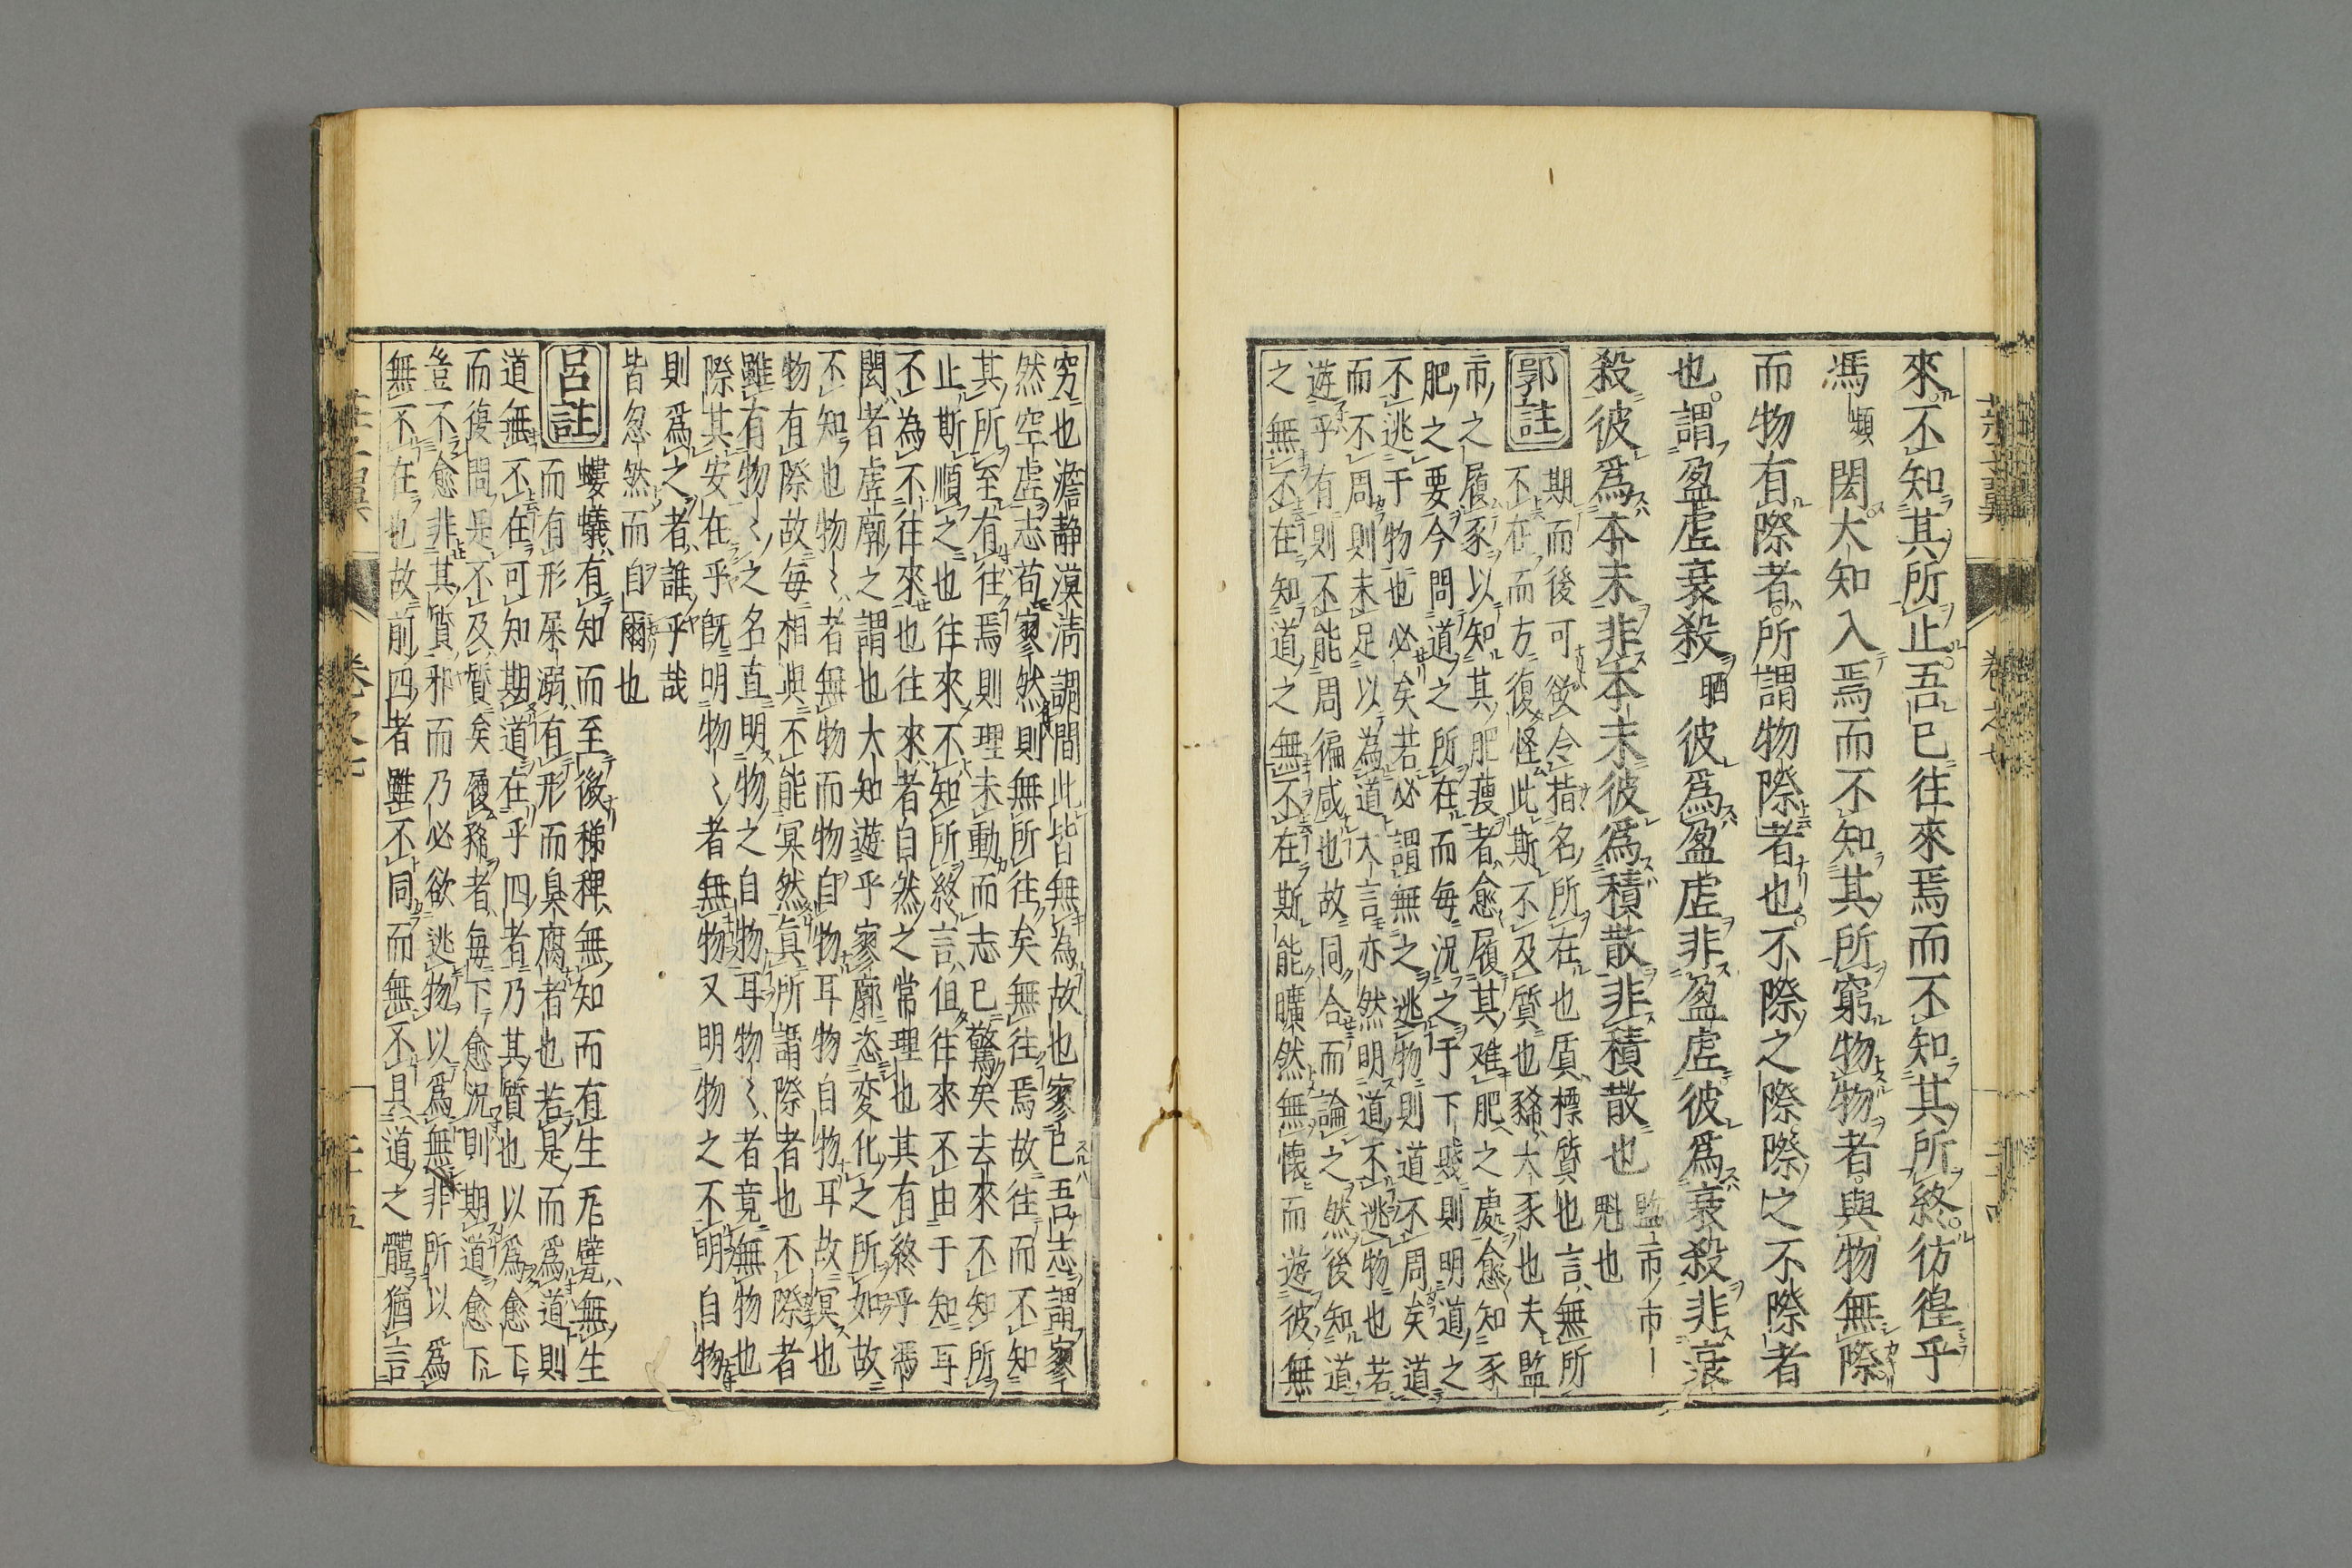 來不知其所止吾已往來焉而不知其所終彷徨乎
馮閎大知入焉而不知其所窮物物者與物無際
而物有際者所謂物際者也不際之際際之不際者
也謂盈虛衰殺彼爲盈虛非盈虛彼爲衰殺非衰
殺彼爲本末非本末彼爲積散非積散也監市市
魁也
郭註
期而後可欲令指名所在也質標質也言無所
不在而方復怪此斯不及質也豨大豕也夫監
市之履豕以知其肥瘦者愈履其难肥之處愈知豕
肥之要今問道之所在而每況之于下賤則明道之
不逃于物也必矣若必謂無之逃物則道不周矣道
而不周則未足以為道大言亦然明道不逃物也若
遊乎有則不能周徧咸也故同合而論之然後知道
之無不在知道之無不在斯能曠然無懷而遊彼無
窮也澹静漠清調間此皆無為故也寥已吾志謂寥
然空虛志苟寥然則無所往矣無往焉故往而不知
其所至有往焉則理未動而志已驚矣去來不知所
止斯順之也往來不知所終言但往來不由于知耳
不為不往來也往來者自然之常理也其有終乎馮
閎者虛廓之謂也大知遊乎寥廓恣变化之所如故
不知也物〻者無物而物自物耳物自物耳故冥也
物有際故每相與不能冥然真所謂際者也不際者
雖有物〻之名直明物之自物耳物〻者竟無物也
際其安在乎既明物〻者無物又明物之不明自物
則爲之者誰乎哉
皆忽然而自爾也
呂註
螻蟻有知而至後稊稗無知而有生瓦甓無生
而有形屎溺有形而臭腐者也若是而爲道則
道無不在可知期道在乎四者乃其質也以爲愈下
而復問是不及質矣履豨者每下愈況則期道愈下
豈不愈非其質邪而乃必欲逃物以爲無非所以爲
無不在也故前四者雖不同而無不具道之體猶言